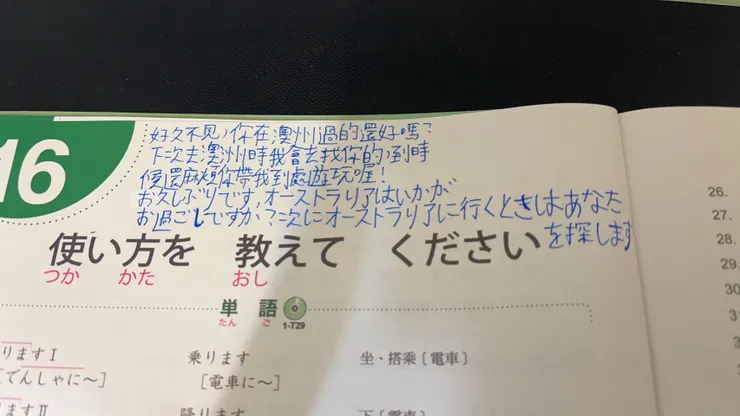 16
好久不見，你在澳州過的還好嗎？
下次去澳州時我會去找你的，到時
候還麻煩你帶我到處遊玩喔！
お久しぶりです，オーストラリアはいかが
お過ごしですか？次にオーストラリアに行くときはあなた
を探します
使い方を 教えて ください
つか かた おし
単語
たん ご 1-T29
ります I 乗ります 坐・搭乘〔電車〕
でんしゃに～] [電車に～]
ますⅡ 降ります 下〔電車〕
26.
27.
28.
29.
30
3